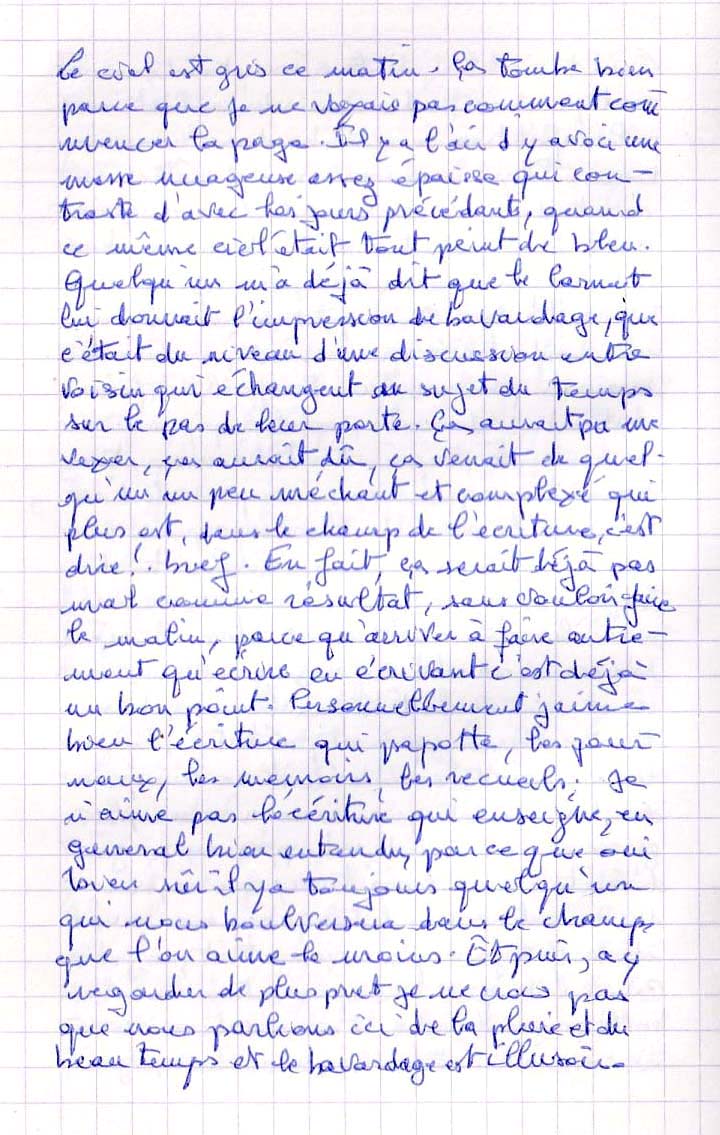 Le ciel est gris ce matin. Ça tombe bien
parce que je ne voyais pas comment com
mencer la page. Il y a l'air d'y avoir une
masse nuageuse assez épaisse qui con-
traste d'avec les jours précédants, quand
ce même ciel était tout peint de bleu.
Quelqu'un m'a déjà dit que le carnet
lui donnait l'impression de bavardage, que
c'était du niveau d'une discussion entre
voisin qui échangent au sujet du temps
sur le pas de leur porte. Ça aurait pu me
vexer, ças aurait dû, ça venait de quel-
qu'un un peu méchant et complexé qui
plus est, dans le champ de l'écriture, c'est
dire! bref. En fait, ça serait déjà pas
mal comme résultat, sans vouloir faire
le malin, parce qu'arriver à faire autre-
ment qu'écrire en écrivant c'est déjà
un bon point. Personnellement j'aime
bien l'écriture qui papotte, les jour
naux, les memoirs, les recueils. Je
n'aime pas l'écriture qui enseigne, en
general bien entendu, parce que oui
bien sûr il y a toujours quelqu'un
qui nous boulversera dans le champ
que l'on aime le moins. Et puis, a y
regarder de plus pret je ne crois pas
que nous parlions ici de la pluie et du
beau temps et le bavardage est illusoir.